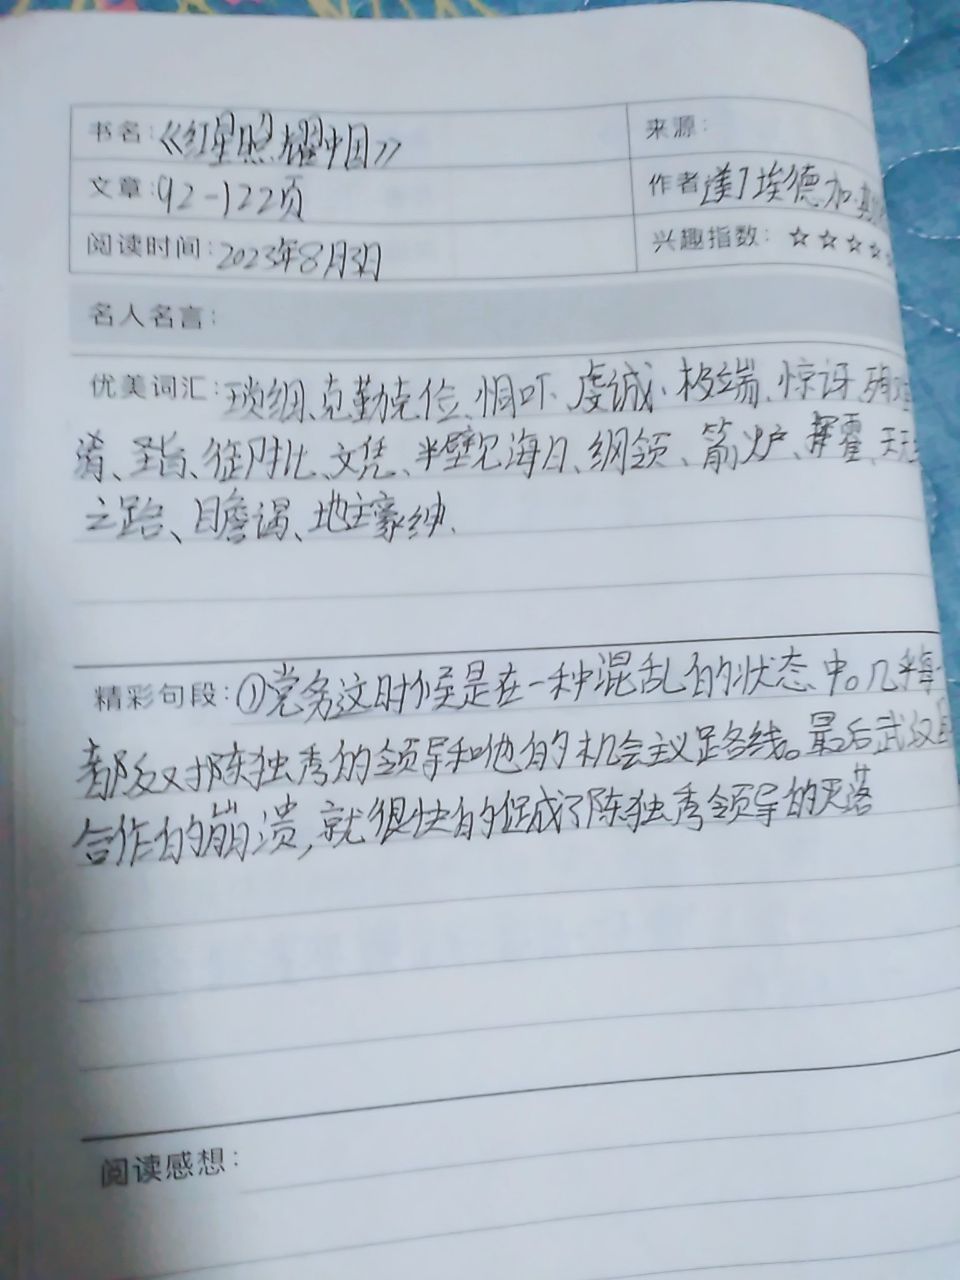 书名:《红星照耀中国》
来源:
文章:92-122页
作者 埃德加·
阅读时间:2023年8月3日
兴趣指数:☆☆☆☆
名人名言:
优美词匯:琐细、克勤克俭、恫吓、虔诚、极端、惊讶
圣旨、文凭、半壁见海日、纲领、挥霍、
之路、瞻谒、地主豪绅、
精彩句段:①党务这时候是在一种混乱的状态中。几乎每
都反对陈独秀的领导和他的机会主义路线。最后武汉
合作的崩溃,就很快的促成了陈独秀领导的灭落
阅读感想: